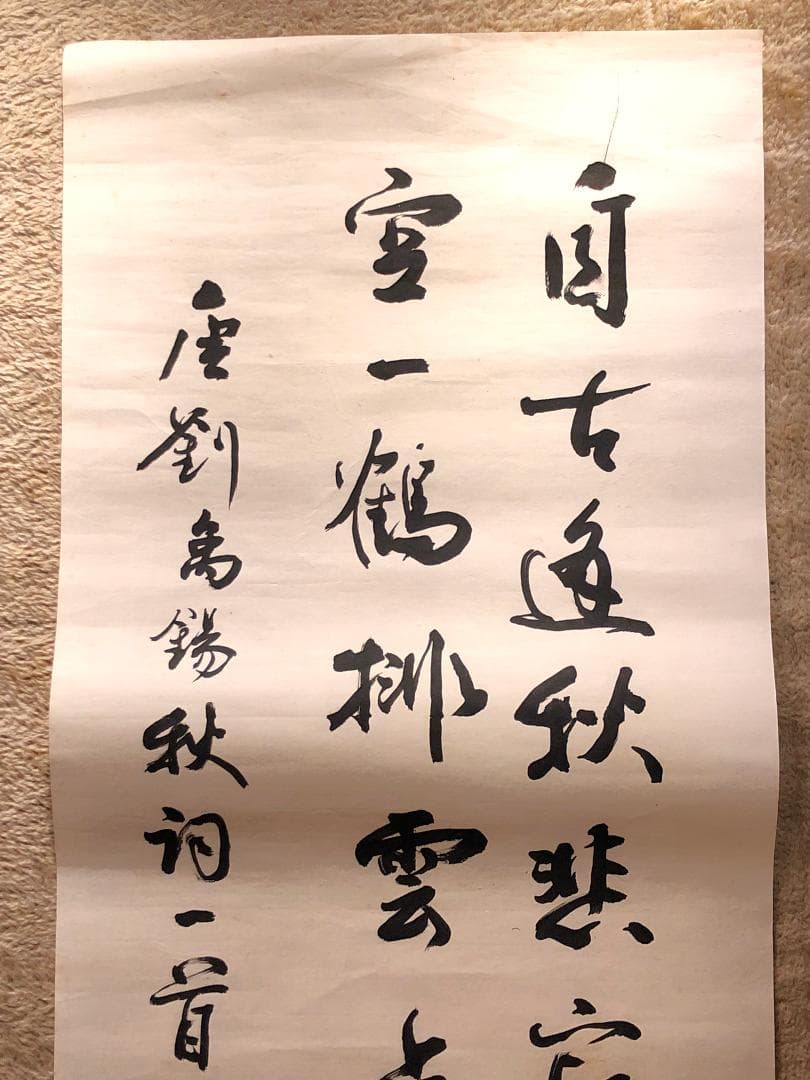 自古逢秋悲寂
空一鶴排雲上
唐劉禹錫秋詞一首